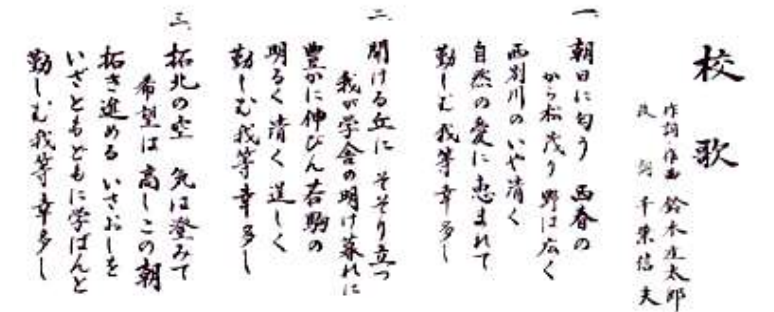 校歌
作詞・作曲 鈴木庄太郎
改 詞 千葉信夫
一、朝日に匂う 西春の
から松茂り 野は広く
西別川のいや清く
自然の愛に恵まれて
勤しむ我等幸多し
二、開ける丘に そそり立つ
我が学舎の明け暮れに
豊かに伸びん若駒の
明るく清く逞しく
勤しむ我等幸多し
三、拓北の空 気は澄みて
希望は 高しこの朝
拓き進める いさおしを
いざともどもに学ばんと
勤しむ我等幸多し